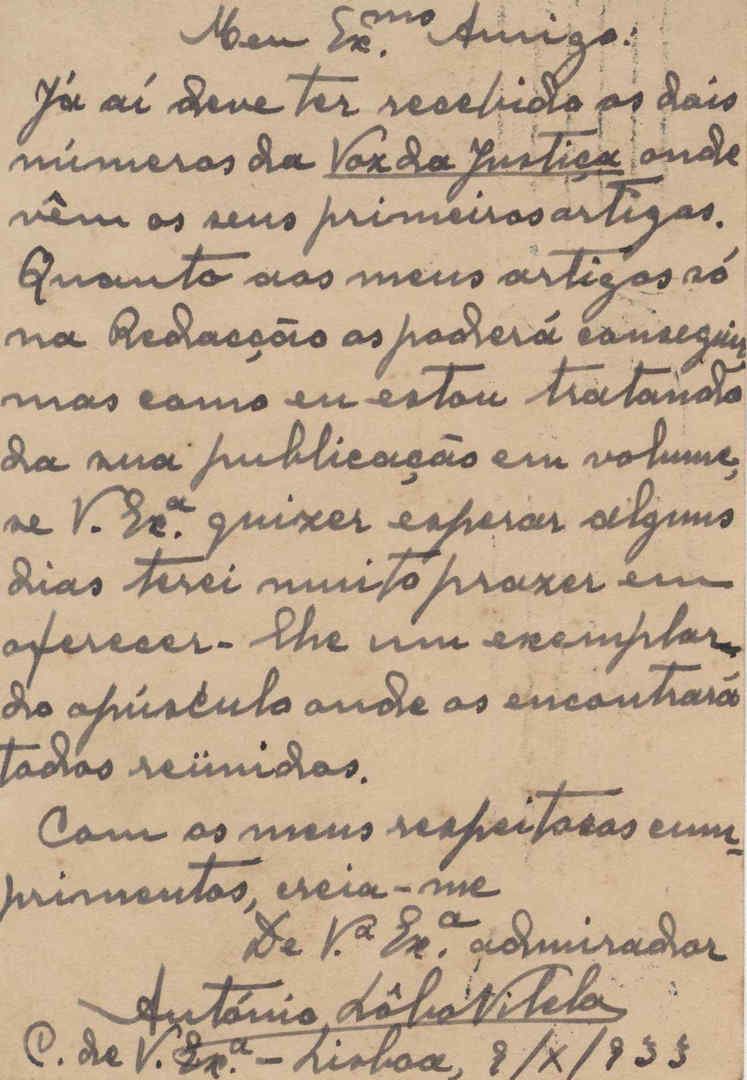 Meu Ex.mo Amigo:
Já aí deve ter recebido os dois
números da Voz da Justiça, onde
vêm os seus primeiros artigos.
Quanto aos meus artigos só
na Redacção os poderá conseguir,
mas como eu estou tratando
da sua publicação em volume,
se V. Ex.a quizer esperar alguns
dias terei muito prazer em
oferecer-lhe um exemplar
do opúsculo onde os encontrará
todos reünidos.
Com os meus respeitosos cum-
primentos, creia-me
De V.a Ex.a admirador
António Lôbo Vilela
C. de V. Ex.a - Lisboa, 9/X/933